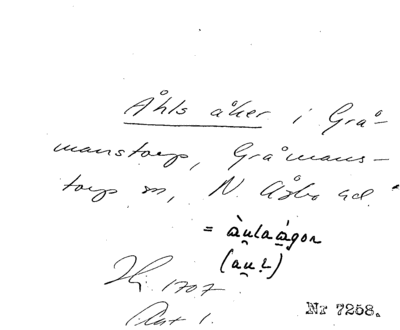 Åhls åker i Grå-
manstorp, Gråmans-
torp sn, N. Åsbo hd.
= àu̯laágon
(au̯!)
1707
Akt 1.
Nr 7258.